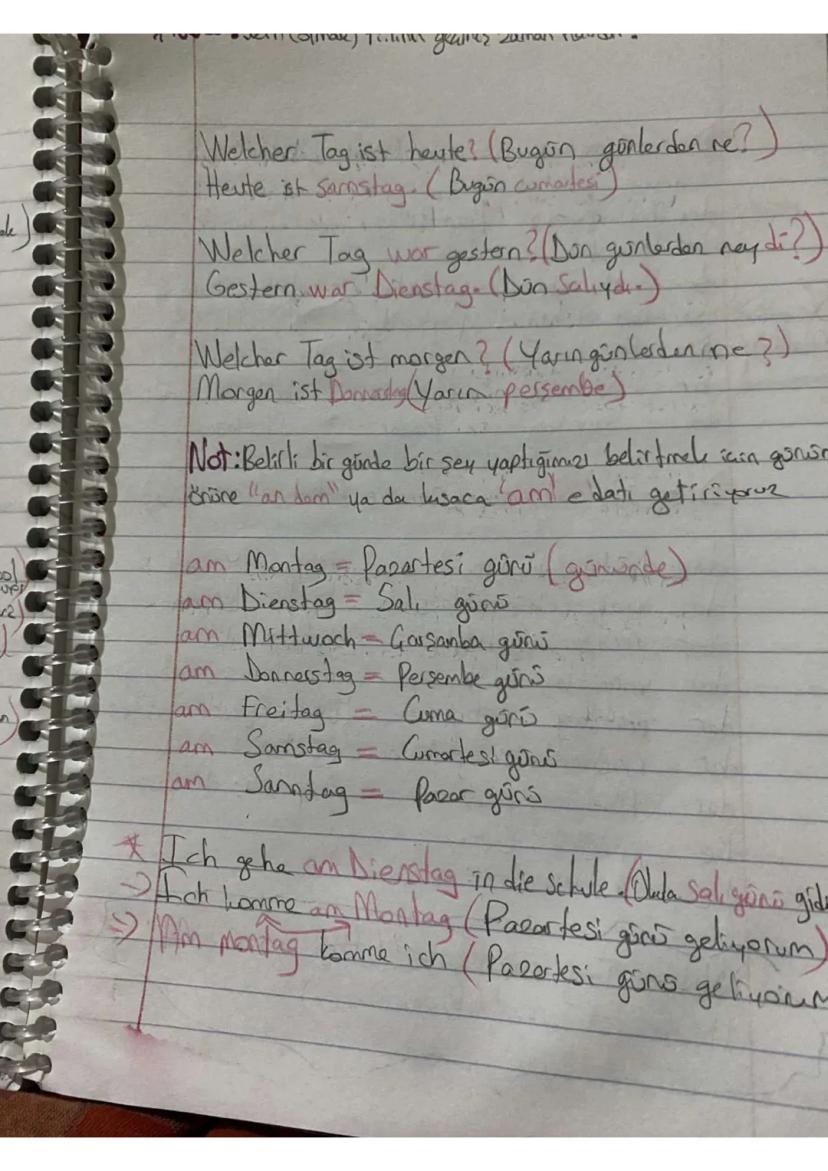 Welcher Tag ist heute? (Bugün günlerden ne?)
Heute ist Samstag. (Bugün cumartesi)
Welcher Tag war gestern? (Dün günlerden neydi?)
Gestern war Dienstag. (Dün Salıydı.)
Welcher Tag ist morgen? (Yarın günlerden ne?)
Morgen ist Donnerstag (Yarın perşembe)
Not: Belirli bir günde bir şey yaptığımızı belirtmek için günün
önüne "an dem" ya da kısaca 'am' edatı getiriyoruz
am Montag = Pazartesi günü (gününde)
am Dienstag = Salı günü
am Mittwoch = Çarşamba günü
am Donnerstag = Perşembe günü
am Freitag = Cuma günü
am Samstag = Cumartesi günü
am Sanntag = Pazar günü
* Ich gehe am Dienstag in die schule. (Okula Salı günü
→ Ich komme am Montag (Pazartesi günü geliyorum)
→ Am montag komme ich (Pazartesi günü geliyorum